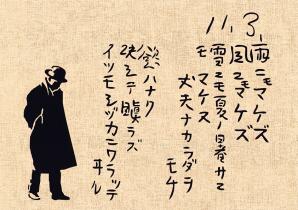 11.3.
雨ニモマケズ
風ニモマケズ
雪ニモ夏ノ暑サニ
モマケヌ
丈夫ナカラダヲ
モチ
慾ハナク
決シテ瞋ラズ
イツモシヅカニワラッテ
ヰル